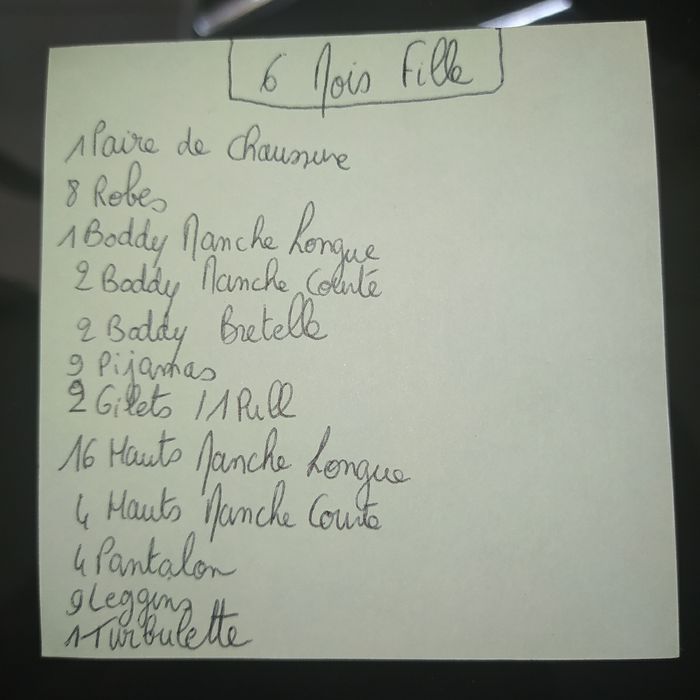 6 Mois Fille
1 Paire de Chaussure
8 Robes
1 Boddy Manche Longue
2 Boddy Manche Courte
2 Boddy Bretelle
9 Pijamas
2 Gilets / 1 Pull
16 Hauts Manche Longue
4 Hauts Manche Courte
4 Pantalon
9 Leggins
1 Turbulette